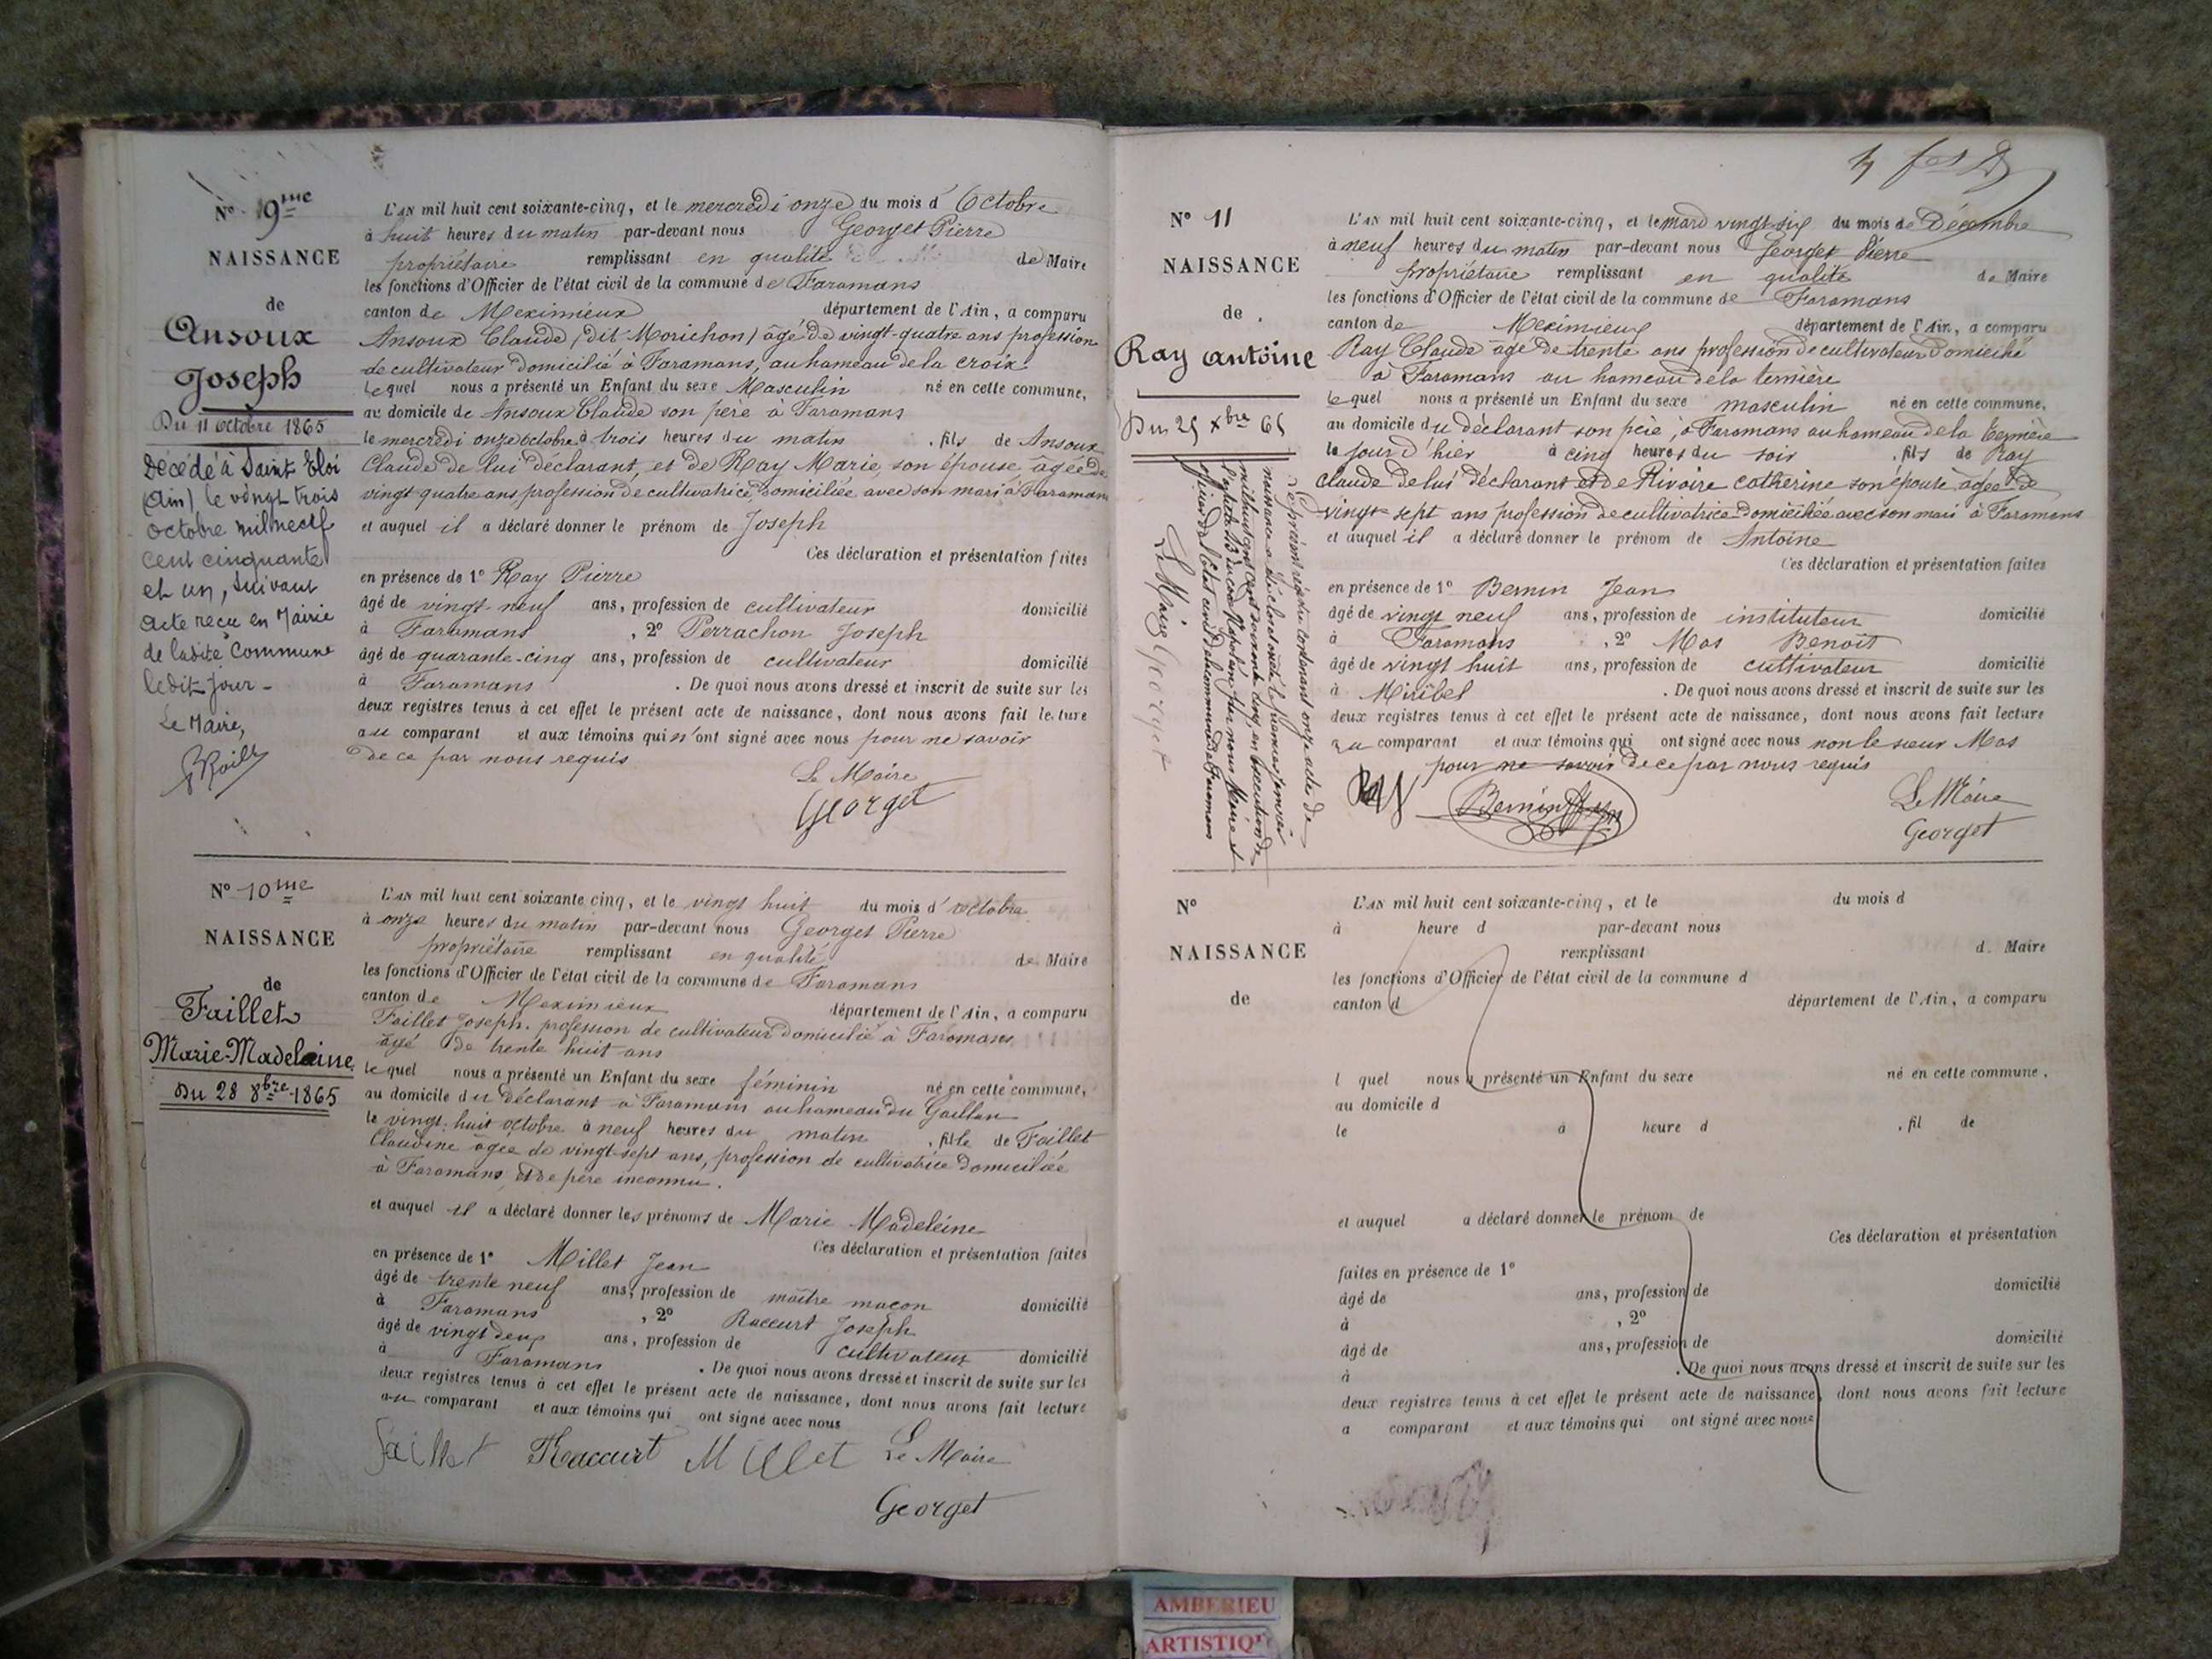 Nº 9me
NAISSANCE
de
Ansoux
Joseph
Du 11 octobre 1865
Décédé à Saint Eloi
(Ain) le vingt trois
octobre mil neuf
cent cinquante
et un, suivant
acte reçu en Mairie
de ladite Commune
ledit jour -
Le Maire,
L'AN mil huit cent soixante-cinq, et le mercredi onze du mois d'Octobre
à huit heures du matin par-devant nous Georget Pierre
propriétaire remplissant en qualité de Maire
les fonctions d'Officier de l'état civil de la commune de Faramans
canton de Meximieux département de l'Ain, a comparu
Ansoux Claude (dit Morichon) âgé de vingt-quatre ans profession
de cultivateur domicilié à Faramans, au hameau de la croix
lequel nous a présenté un Enfant du sexe Masculin né en cette commune,
au domicile de Ansoux Claude son père à Faramans
le mercredi onze octobre à trois heures du matin , fils de Ansoux
Claude de lui déclarant, et de Ray Marie, son épouse âgée de
vingt quatre ans profession de cultivatrice domiciliée avec son mari à Faramans
et auquel il a déclaré donner le prénom de Joseph
Ces déclaration et présentation faites
en présence de 1º Ray Pierre
âgé de vingt-neuf ans, profession de cultivateur domicilié
à Faramans , 2º Perrachon Joseph
âgé de quarante-cinq ans, profession de cultivateur domicilié
à Faramans . De quoi nous avons dressé et inscrit de suite sur les
deux registres tenus à cet effet le présent acte de naissance, dont nous avons fait lecture
au comparant et aux témoins qui n'ont signé avec nous pour ne savoir
de ce par nous requis
Le Maire
Georget
Nº 10me
NAISSANCE
de
Faillet
Marie-Madelaine
Du 28 8bre 1865
L'AN mil huit cent soixante cinq, et le vingt huit du mois d'octobre
à onze heures du matin par-devant nous Georget Pierre
propriétaire remplissant en qualité de Maire
les fonctions d'Officier de l'état civil de la commune de Faramans
canton de Meximieux département de l'Ain, a comparu
Faillet Joseph. profession de cultivateur domicilié à Faramans
âgé de trente huit ans
lequel nous a présenté un Enfant du sexe féminin né en cette commune,
au domicile du déclarant à Faramans au hameau du Gaillan
le vingt-huit octobre à neuf heures du matin , fille de Faillet
Claudine âgée de vingt-sept ans, profession de cultivatrice domiciliée
à Faramans, et de père inconnu.
et auquel il a déclaré donner les prénoms de Marie Madeleine
Ces déclaration et présentation faites
en présence de 1º Millet Jean
âgé de trente neuf ans, profession de maître maçon domicilié
à Faramans , 2º Raccurt Joseph
âgé de vingt deux ans, profession de cultivateur domicilié
à Faramans . De quoi nous avons dressé et inscrit de suite sur les
deux registres tenus à cet effet le présent acte de naissance, dont nous avons fait lecture
au comparant et aux témoins qui ont signé avec nous
faillet Raccurt Millet Le Maire
Georget
Nº 11
NAISSANCE
de
Ray antoine
Du 25 Xbre 65
Le présent registre contenant onze acte de
naissance a été clos et arrêté le premier janvier
mil huit cent soixante six, en exécution de
l'article 43 du code Napoléon, par nous Maire et
officier de l'état civil de la commune de Faramans
Le Maire Georget
L'AN mil huit cent soixante-cinq, et le mardi vingt-six du mois de Décembre
à neuf heures du matin par-devant nous Georget Pierre
propriétaire remplissant en qualité de Maire
les fonctions d'Officier de l'état civil de la commune de Faramans
canton de Meximieux département de l'Ain, a comparu
Ray Claude âgé de trente ans profession de cultivateur domicilié
à Faramans au hameau de la
lequel nous a présenté un Enfant du sexe masculin né en cette commune,
au domicile du déclarant son père, à Faramans au hameau de la
le jour d'hier à cinq heures du soir , fils de Ray
Claude de lui déclarant et de Rivoire Catherine son épouse, âgée de
vingt-sept ans profession de cultivatrice domiciliée avec son mari à Faramans
et auquel il a déclaré donner le prénom de Antoine
Ces déclaration et présentation faites
en présence de 1º Bernin Jean
âgé de vingt neuf ans, profession de instituteur domicilié
à Faramans , 2º Mas Benoît
âgé de vingt huit ans, profession de cultivateur domicilié
à Miribel . De quoi nous avons dressé et inscrit de suite sur les
deux registres tenus à cet effet le présent acte de naissance, dont nous avons fait lecture
au comparant et aux témoins qui ont signé avec nous non le sieur Mas
pour ne savoir de ce par nous requis
Ray Bernin Jean Le Maire
Georget
Nº
NAISSANCE
de
L'AN mil huit cent soixante-cinq, et le du mois d
à heure d par-devant nous
remplissant d Maire
les fonctions d'Officier de l'état civil de la commune d
canton d département de l'Ain, a comparu
l quel nous a présenté un Enfant du sexe né en cette commune,
au domicile d
le à heure d , fil de
et auquel a déclaré donner le prénom de
Ces déclaration et présentation
faites en présence de 1º
âgé de ans, profession de domicilié
à , 2º
âgé de ans, profession de domicilié
à . De quoi nous avons dressé et inscrit de suite sur les
deux registres tenus à cet effet le présent acte de naissance, dont nous avons fait lecture
a comparant et aux témoins qui ont signé avec nous
AMBERIEU
ARTISTIQ